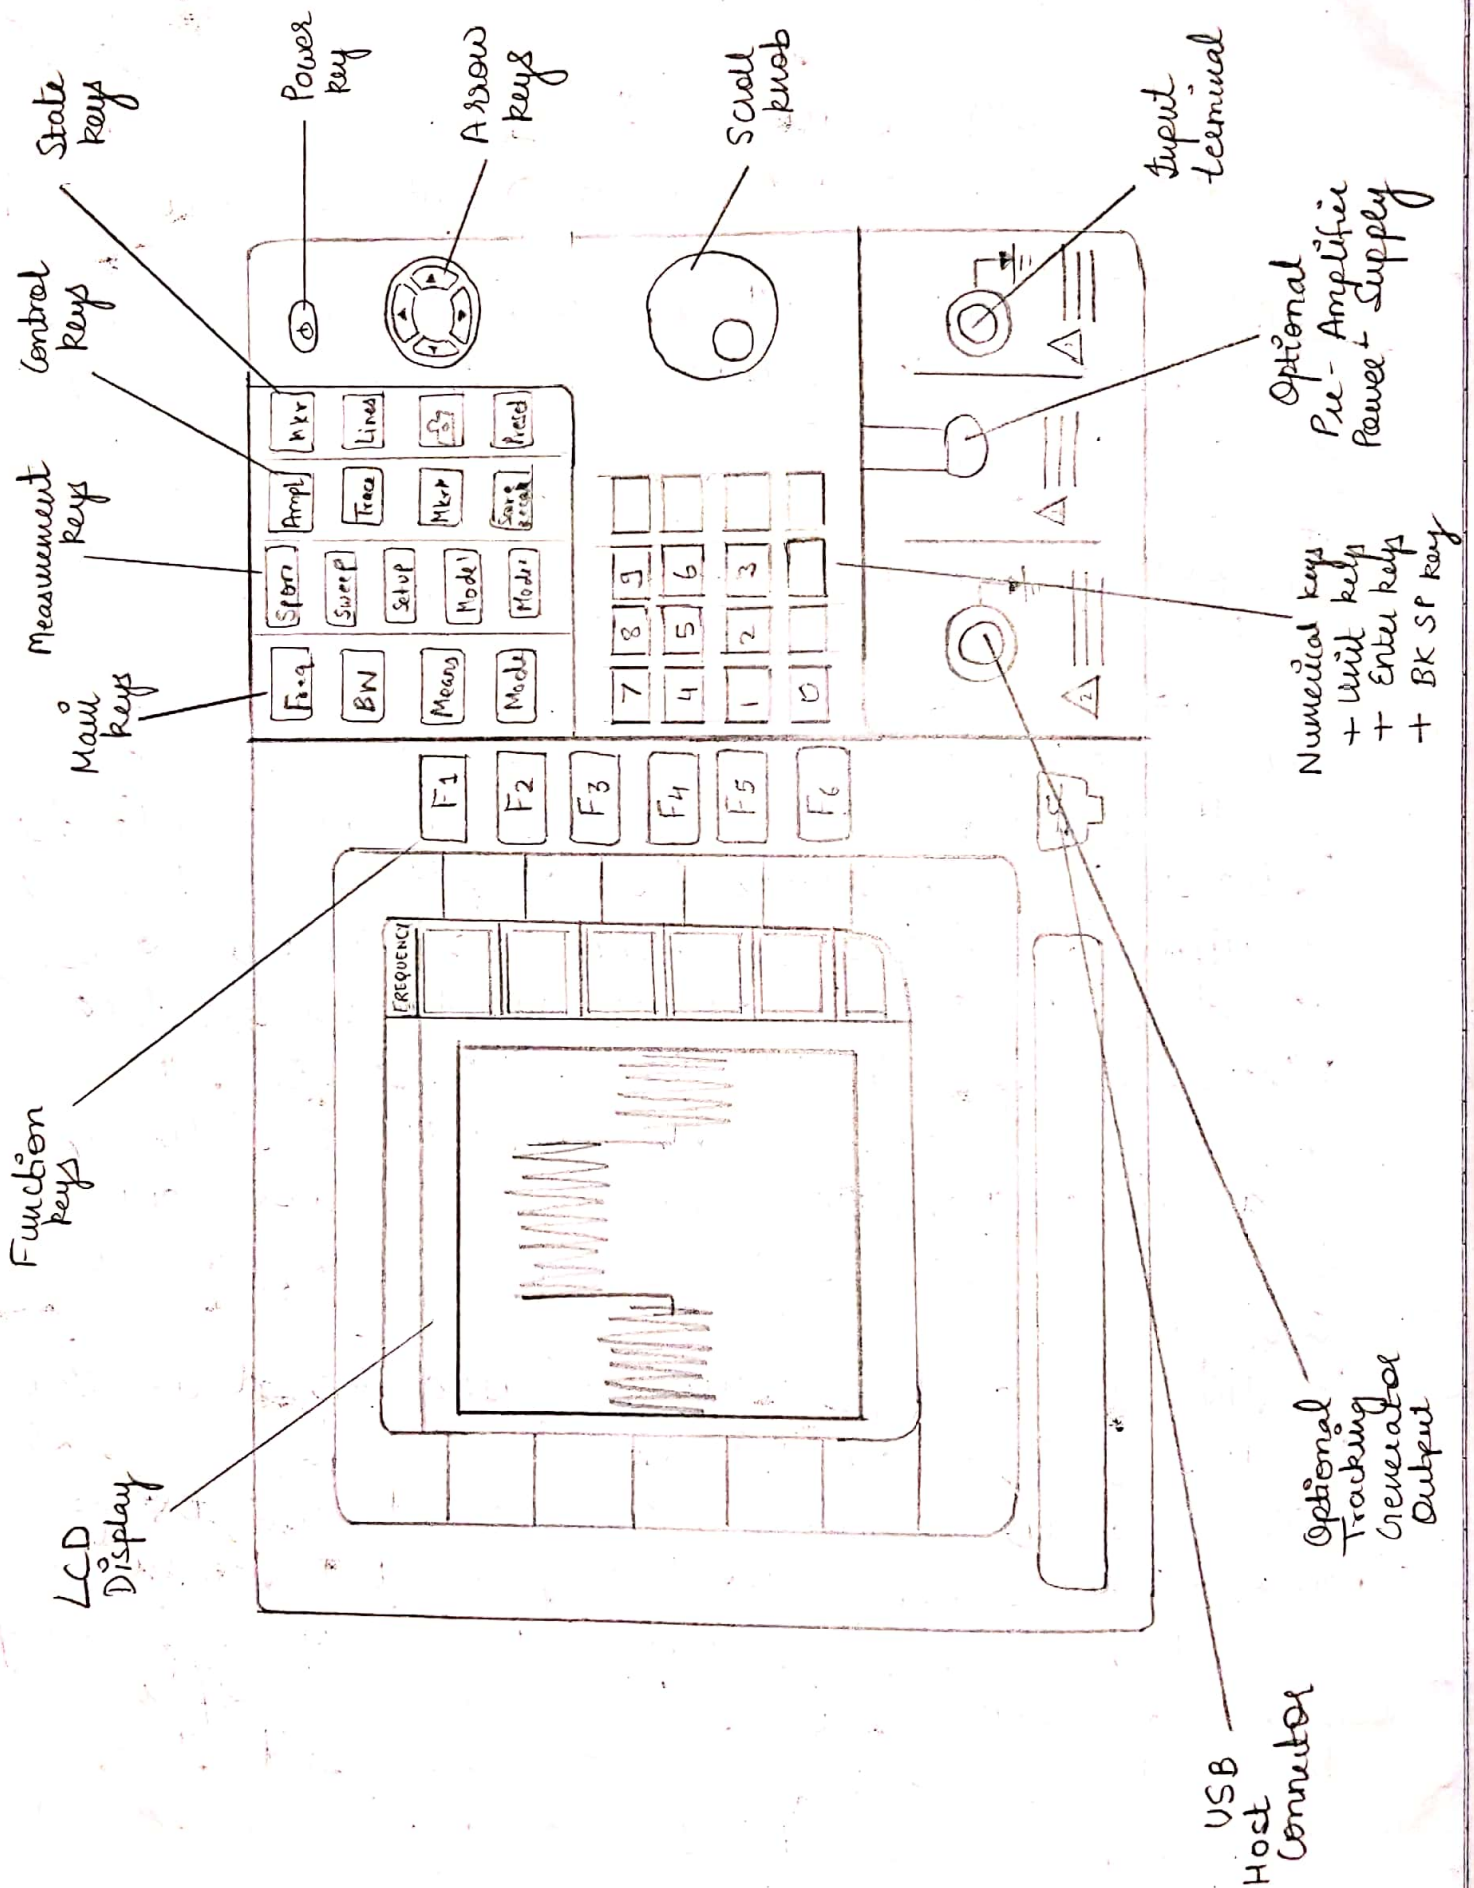 LCD
Display
Function
keys
Main
keys
Measurement
keys
Control
keys
State
keys
Power
key
Arrow
keys
Scroll
knob
Input
terminal
Optional
Pre - Amplifier
Power Supply
Numerical keys
+ Unit keys
+ Enter keys
+ BK SP key
Optional
Tracking
Generator
Output
USB
Host
Connector
FREQUENCY
F1
F2
F3
F4
F5
F6
Freq
Span
Ampl
Mkr
BW
Sweep
Trace
Lines
Setup
Means
Model
Mkr
Mode
Model
Save
Recall
Preset
7
8
9
4
5
6
1
2
3
0
2